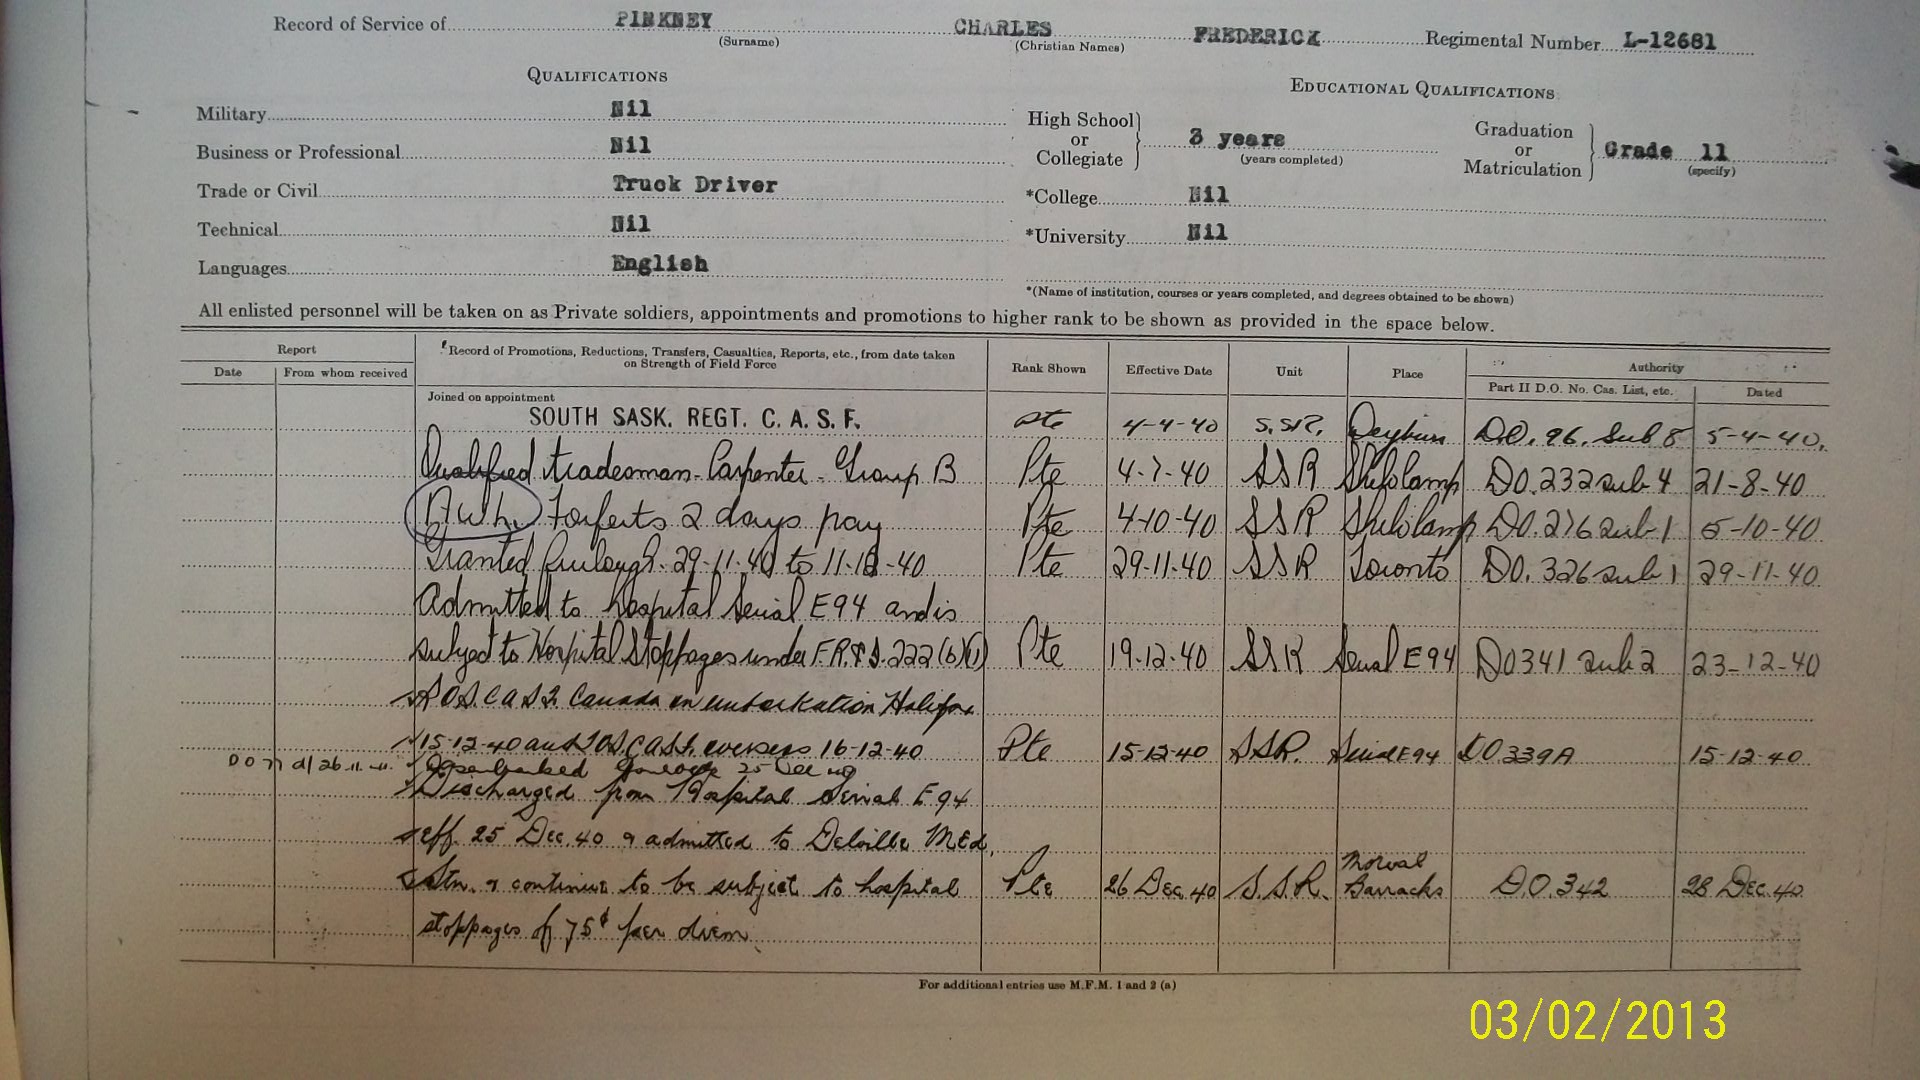 Record of Service of PINKNEY CHARLES FREDERICK Regimental Number L-12681
(Surname) (Christian Names)
QUALIFICATIONS EDUCATIONAL QUALIFICATIONS
Military Nil
High School or Collegiate 3 years (years completed) Graduation or Matriculation Grade 11 (specify)
Business or Professional Nil
Trade or Civil Truck Driver *College Nil
Technical Nil *University Nil
Languages English
*(Name of institution, courses or years completed, and degrees obtained to be shown)
All enlisted personnel will be taken on as Private soldiers, appointments and promotions to higher rank to be shown as provided in the space below.
Report Record of Promotions, Reductions, Transfers, Casualties, Reports, etc., from date taken on Strength of Field Force Rank Shown Effective Date Unit Place Authority
Date From whom received Part II D.O. No. Cas. List, etc. Dated
Joined on appointment
SOUTH SASK. REGT. C. A. S. F. Pte 4-4-40 S.S.R. Weyburn D.O. 96. Sub 8 5-4-40.
Qualified tradesman - Carpenter - Group B Pte 4-7-40 SSR Shilo Camp DO. 232 sub 4 21-8-40
Forfeits 2 days pay Pte 4-10-40 SSR Shilo Camp DO. 276 sub 1 5-10-40
Granted furlough. 29-11-40 to 11-12-40 Pte 29-11-40 SSR Toronto DO. 326 sub 1 29-11-40
Admitted to hospital Serial E 94 and is
subject to Hospital Stoppages under F.R.& I. 222 (6)(1) Pte 19-12-40 SSR Serial E 94 DO 341 sub 2 23-12-40
SOS. C A S F. Canada on embarkation Halifax
15-12-40 and TOS. C.A.S.F. overseas 16-12-40 Pte 15-12-40 SSR. Serial E 94 DO. 339A 15-12-40
Disembarked 25 Dec 40
Discharged from Hospital Serial E 94
eff. 25 Dec. 40 & admitted to Delville Med.
Stn. & continue to be subject to hospital Pte 26 Dec. 40 S.S.R. Morval Barracks D.O. 342 28 Dec. 40
stoppages of 75¢ per diem
For additional entries use M.F.M. 1 and 2 (a)
03/02/2013